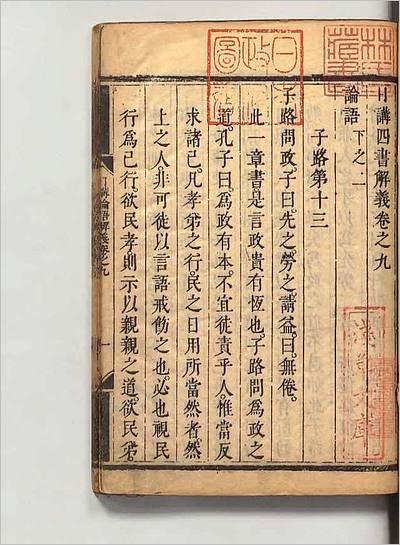 日講四書解義卷之九
論語下之二
子路第十三
子路問政。子曰。先之。勞之。請益。曰。無倦。
此一章書是言政貴有恆也。子路問爲政之
道。孔子曰。爲政有本。不宜徒責乎人。惟當反
求諸己。凡孝弟之行。民之日用所當然者。然
上之人非可徒以言語戒飭之也。必也視民
行爲己行。欲民孝則示以親親之道。欲民弟